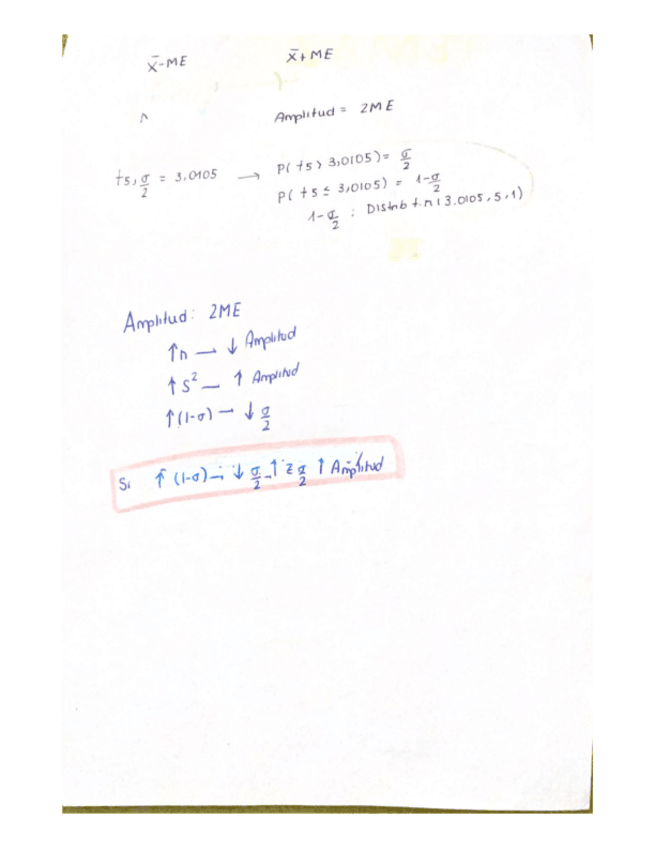 x̄-ME x̄+ME
Amplitud = 2ME
t5, σ/2 = 3,0105 → P(t5 > 3,0105) = σ/2
P(t5 ≤ 3,0105) = 1-σ/2
1-σ/2 : Distrib t.n (3.0105,5,1)
Amplitud: 2ME
↑n — ↓ Amplitud
↑S² — ↑ Amplitud
↑(1-σ) — ↓ σ/2
Si ↑ (1-σ) → ↓ σ/2 → ↑ z σ/2 ↑ Amplitud